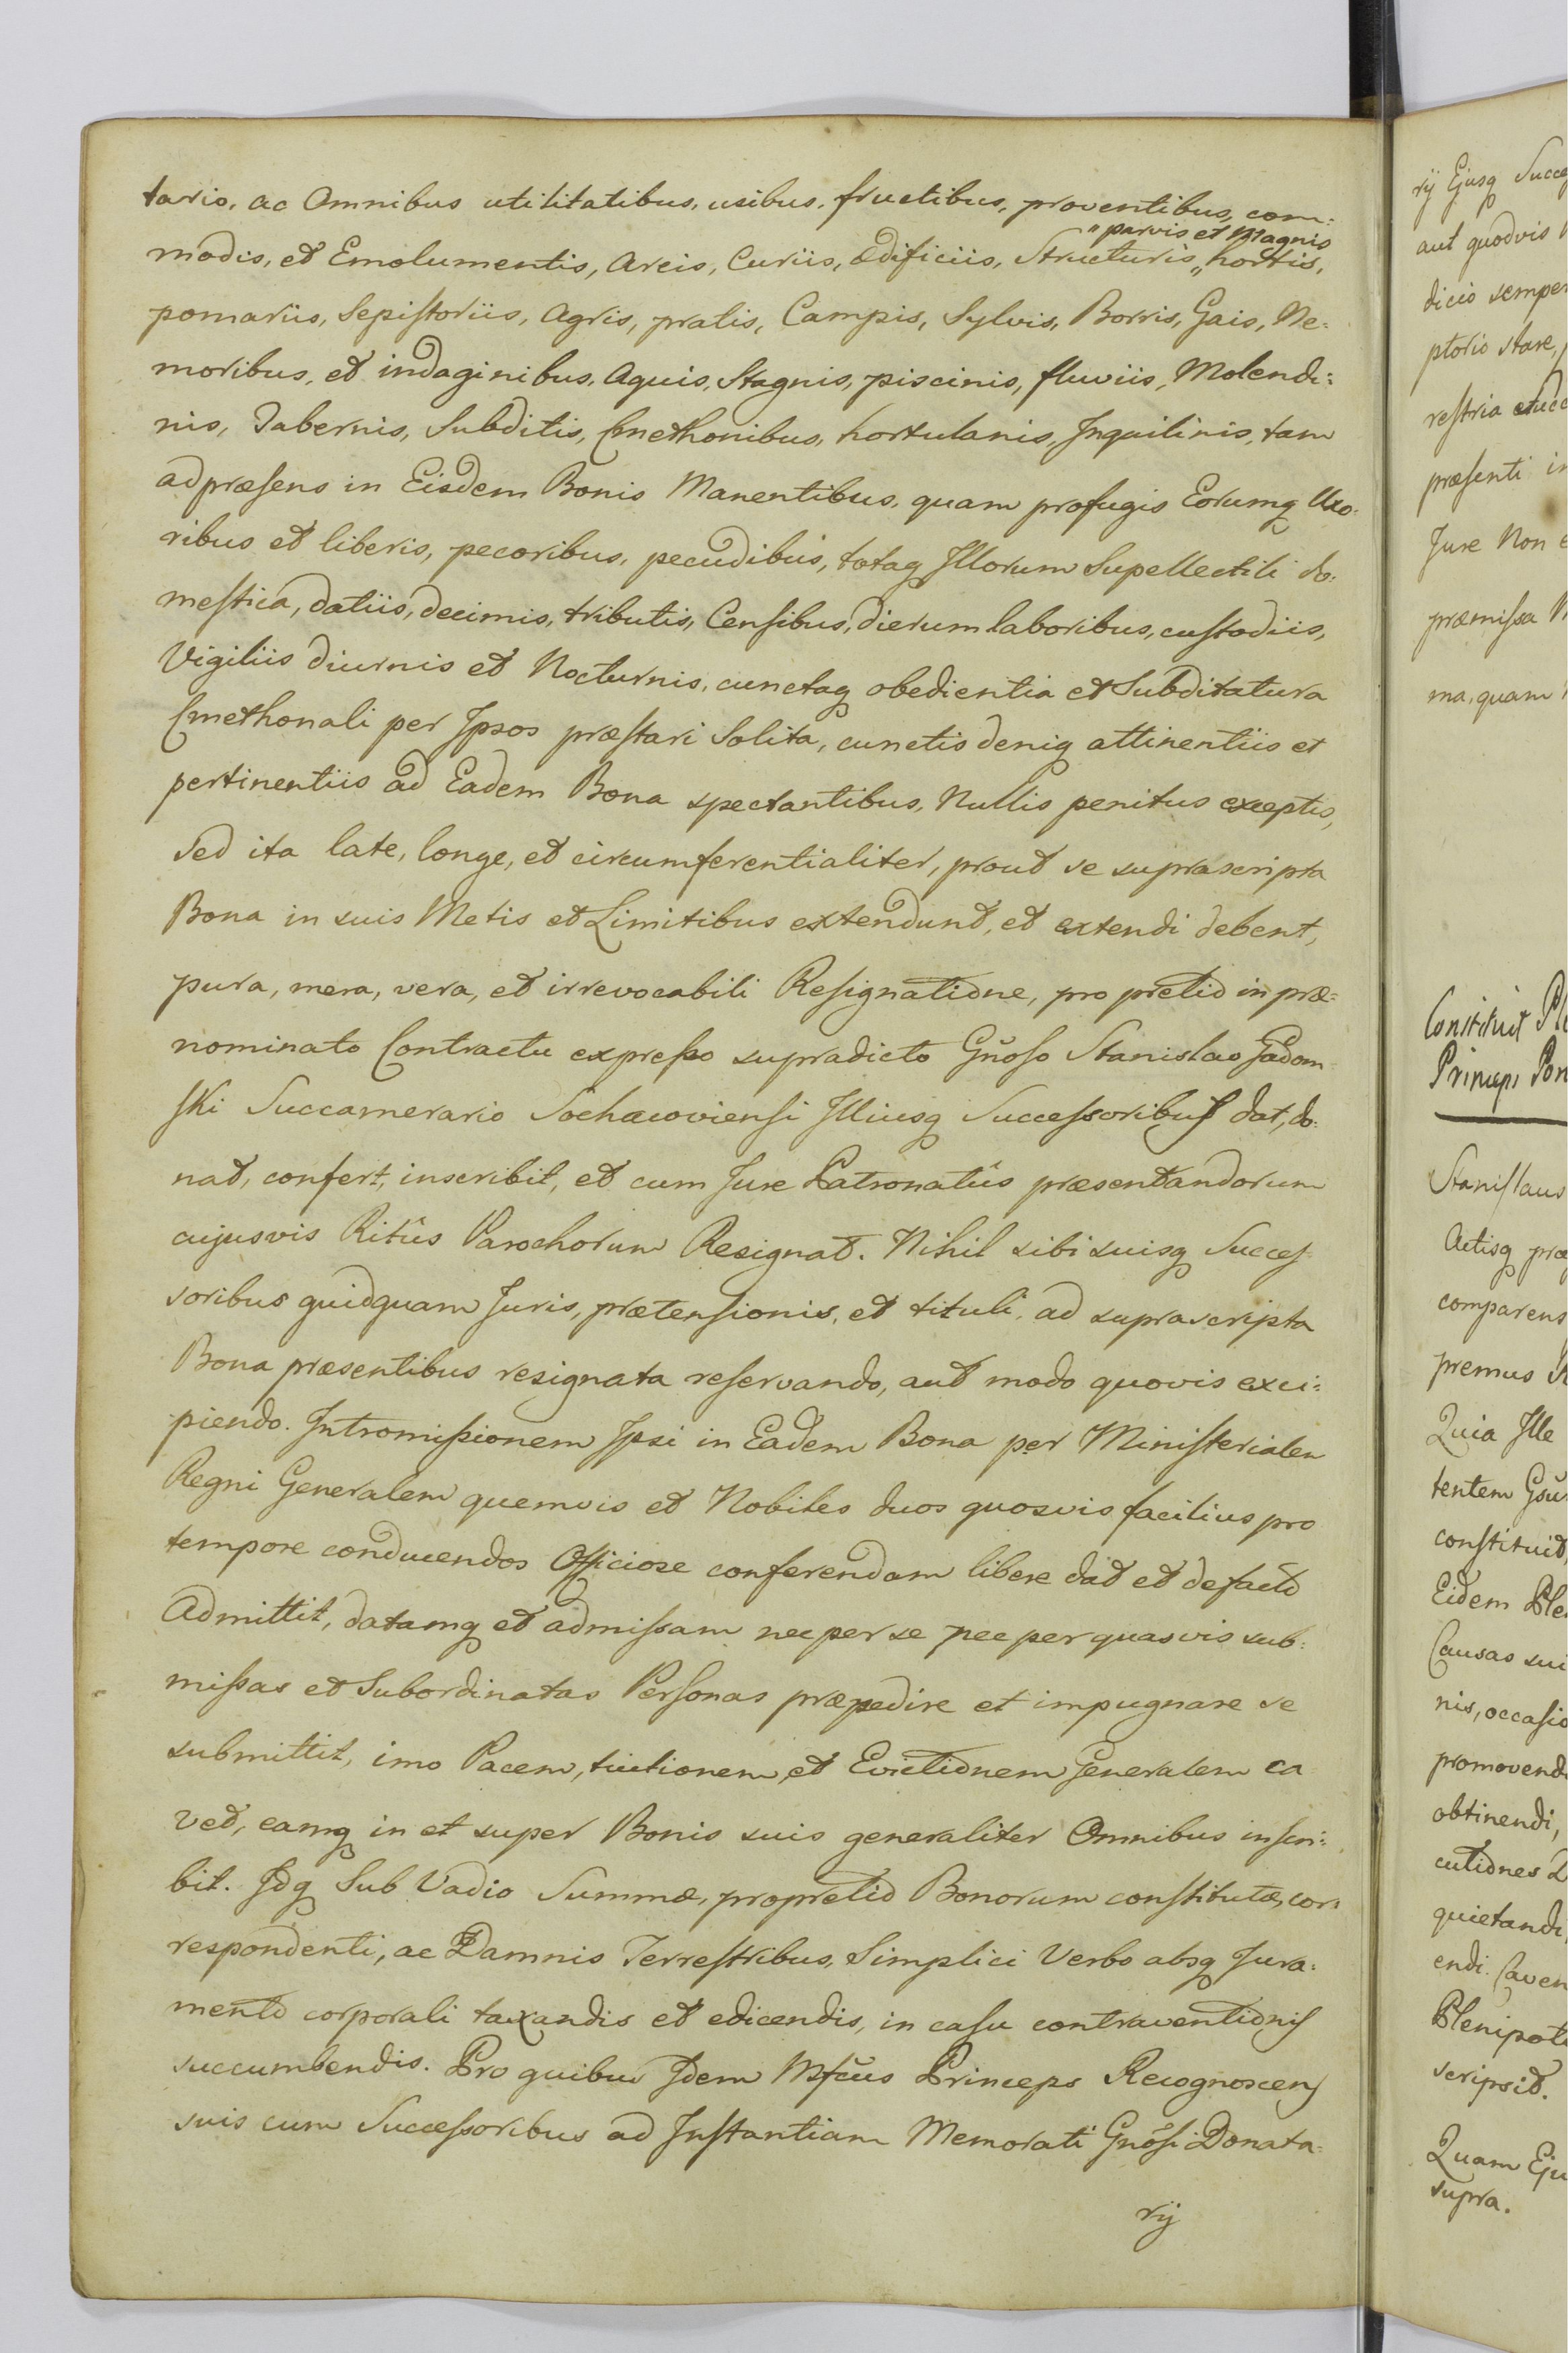 tario, ac Omnibus utilitatibus, usibus, fructibus, proventibus, com:
"parvis et Magnis
modis, et Emolumentis, Areis, Curiis, Ædificiis, Structuris, „hortis,
pomariis, Sepistoriis, Agris, pratis, Campis, Sylvis, Borris, Gais, Ne:
moribus, et indaginibus, Aquis, Stagnis, piscinis, fluviis, Molendi:
nis, Tabernis, Subditis, Cmethonibus, hortulanis, Inquilinis, tam
ad præsens in Eisdem Bonis Manentibus, quam profugis Eorumq Uxo:
ribus et liberis, pecoribus, pecudibus, totaq Illorum Supellectili do:
mestica, datiis, decimis, tributis, Censibus, dierum laboribus, custodiis,
Vigiliis diurnis et Nocturnis, cunctaq obedientia et Subditatura
Cmethonali per Ipsos præstari Solita, cunctis deniq attinentiis et
pertinentiis ad Eadem Bona spectantibus, Nullis penitus exceptis,
sed ita late, longe, et circumferentialiter, prout se suprascripta
Bona in suis Metis et Limitibus extendunt, et extendi debent,
pura, mera, vera, et irrevocabili Resignatione, pro pretio in præ=
nominato Contractu expresso supradicto Gñoso Stanislao Gadom
ski Succamerario Sochacoviensi Illiusq Successoribus dat, do:
nat, confert, inscribit, et cum Jure Patronatûs præsentandorum
cujusvis Ritûs Parochorum Resignat. Nihil sibi suisq Succes
soribus quidquam Juris, prætensionis, et tituli, ad suprascripta
Bona præsentibus resignata reservando, aut modo quovis exci:
piendo. Intromissionem Ipsi in Eadem Bona per Ministerialem
Regni Generalem quemvis et Nobiles duos quosvis facilius pro
tempore conducendos Officiose conferendam libere dat et defacto
Admittit, datamq et admissam nec per se nec per quasvis sub:
missas et Subordinatas Personas præpedire et impugnare se
submittit, imo Pacem, tuitionem et Evictionem Generalem ca
vet, eamq in et super Bonis suis generaliter Omnibus inscri:
bit. Idq Sub Vadio Summæ, pro pretio Bonorum constitutæ, cor:
respondenti, ac Damnis Terrestribus, Simplici Verbo absq Jura:
mento corporali taxandis et edicendis, in casu contraventionis
succumbendis. Pro quibus Idem Mfcus Princeps Recognoscens
suis cum Successoribus ad Instantiam Memorati Gnosi Donata:
rij
rij Ejusq Succes
aut quodvis
dicio semper
ptorio stare,
restria
præsenti in
Jure Non
præmissa
ma, quam
Constituit
Princeps Pon
Stanislaus
Actisq præ
comparens
premus
Quia Ille
tentem
constituit
Eidem Ple
Causas sui
nis, occasio
promovendi
obtinendi,
cutiones
quietandi,
endi. Caven
Plenipote
scripsit.
Quam Eju
supra.